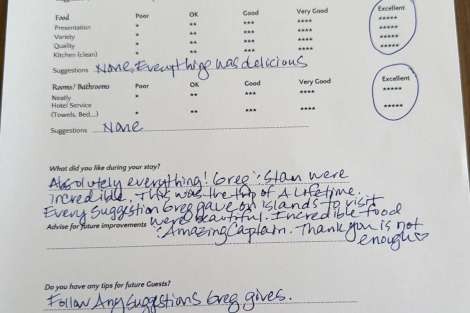 Suggestions
Food Poor OK Good Very Good Excellent
Presentation * ** *** **** *****
Variety * ** *** **** *****
Quality * ** *** **** *****
Kitchen (clean) * ** *** **** *****
Suggestions None, Everything was delicious
Rooms/ Bathrooms Poor OK Good Very Good Excellent
Neatly * ** *** **** *****
Hotel Service
(Towels, Bed...) * ** *** **** *****
Suggestions None
What did you like during your stay?
Absolutely everything! Greg & Stan were
incredible. This was the trip of A Lifetime.
Every Suggestion Greg gave on islands to visit
were beautiful. Incredible food
Advise for future improvements & Amazing Captain. Thank you is not
enough ♡
Do you have any tips for future Guests?
Follow Any Suggestions Greg gives.